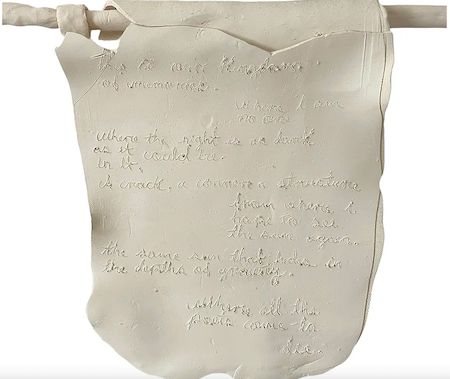 this is our kingdom
of
where I am
no one
where the night is as dark
as it could be.
in it.
A crack, a common structure
from where I
hope to see
the sun again.
the same sun that hides in
the depths of
where all the
poets come to
die.